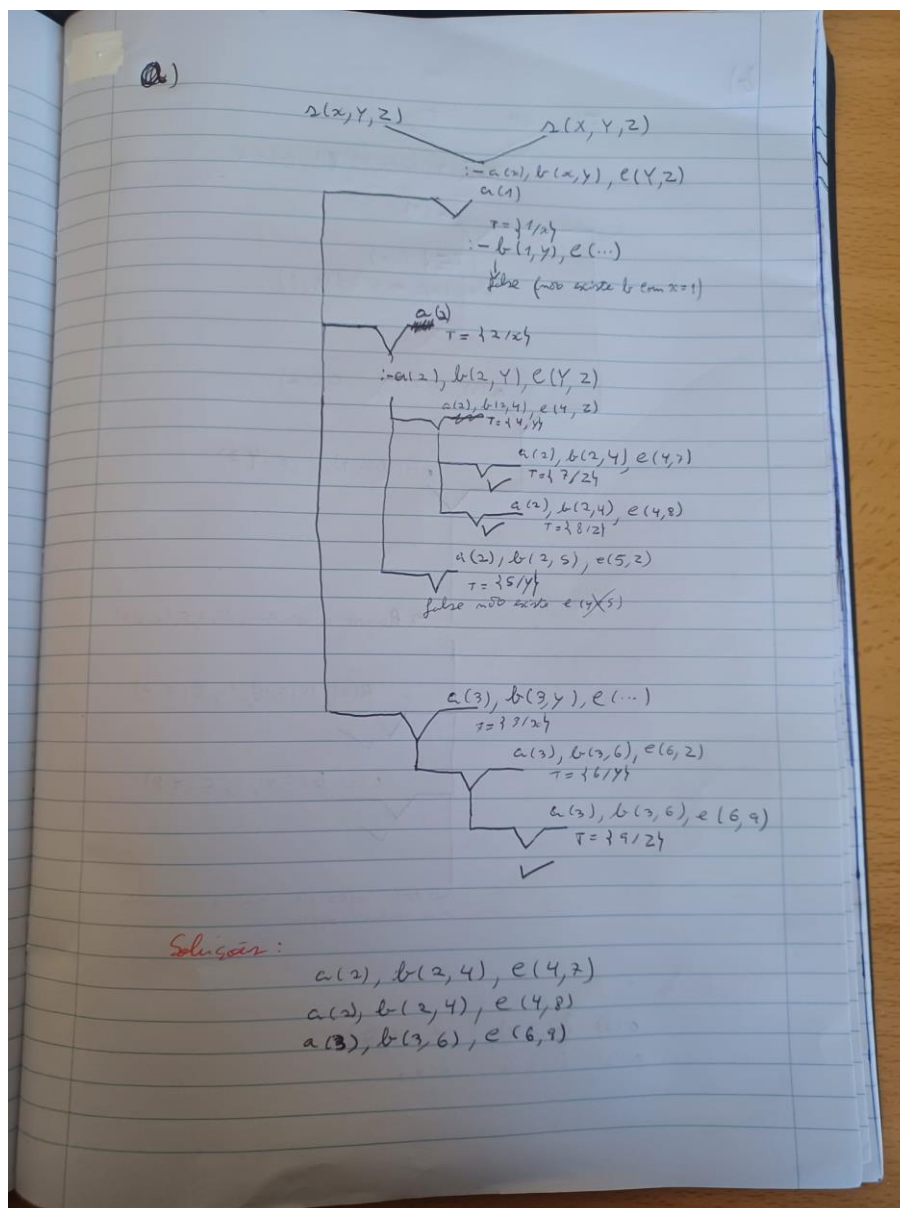 a)
s(x,Y,Z) s(X,Y,Z)
:- a(x), b(x,y), c(Y,Z)
a(1)
T={1/x}
:- b(1,y), c(...)
false (não existe b com x=1)
a(2)
T={2/x}
:-a(2), b(2,Y), c(Y,Z)
a(2), b(2,4), c(4,Z)
T={4,Y}
a(2), b(2,4), c(4,7)
T={7/Z}
a(2), b(2,4), c(4,8)
T={8/Z}
a(2), b(2,5), c(5,Z)
T={5/Y}
false não existe c(5)
a(3), b(3,y), c(...)
T={3/x}
a(3), b(3,6), c(6,Z)
T={6/Y}
a(3), b(3,6), c(6,9)
T={9/Z}
Soluções:
a(2), b(2,4), c(4,7)
a(2), b(2,4), c(4,8)
a(3), b(3,6), c(6,9)